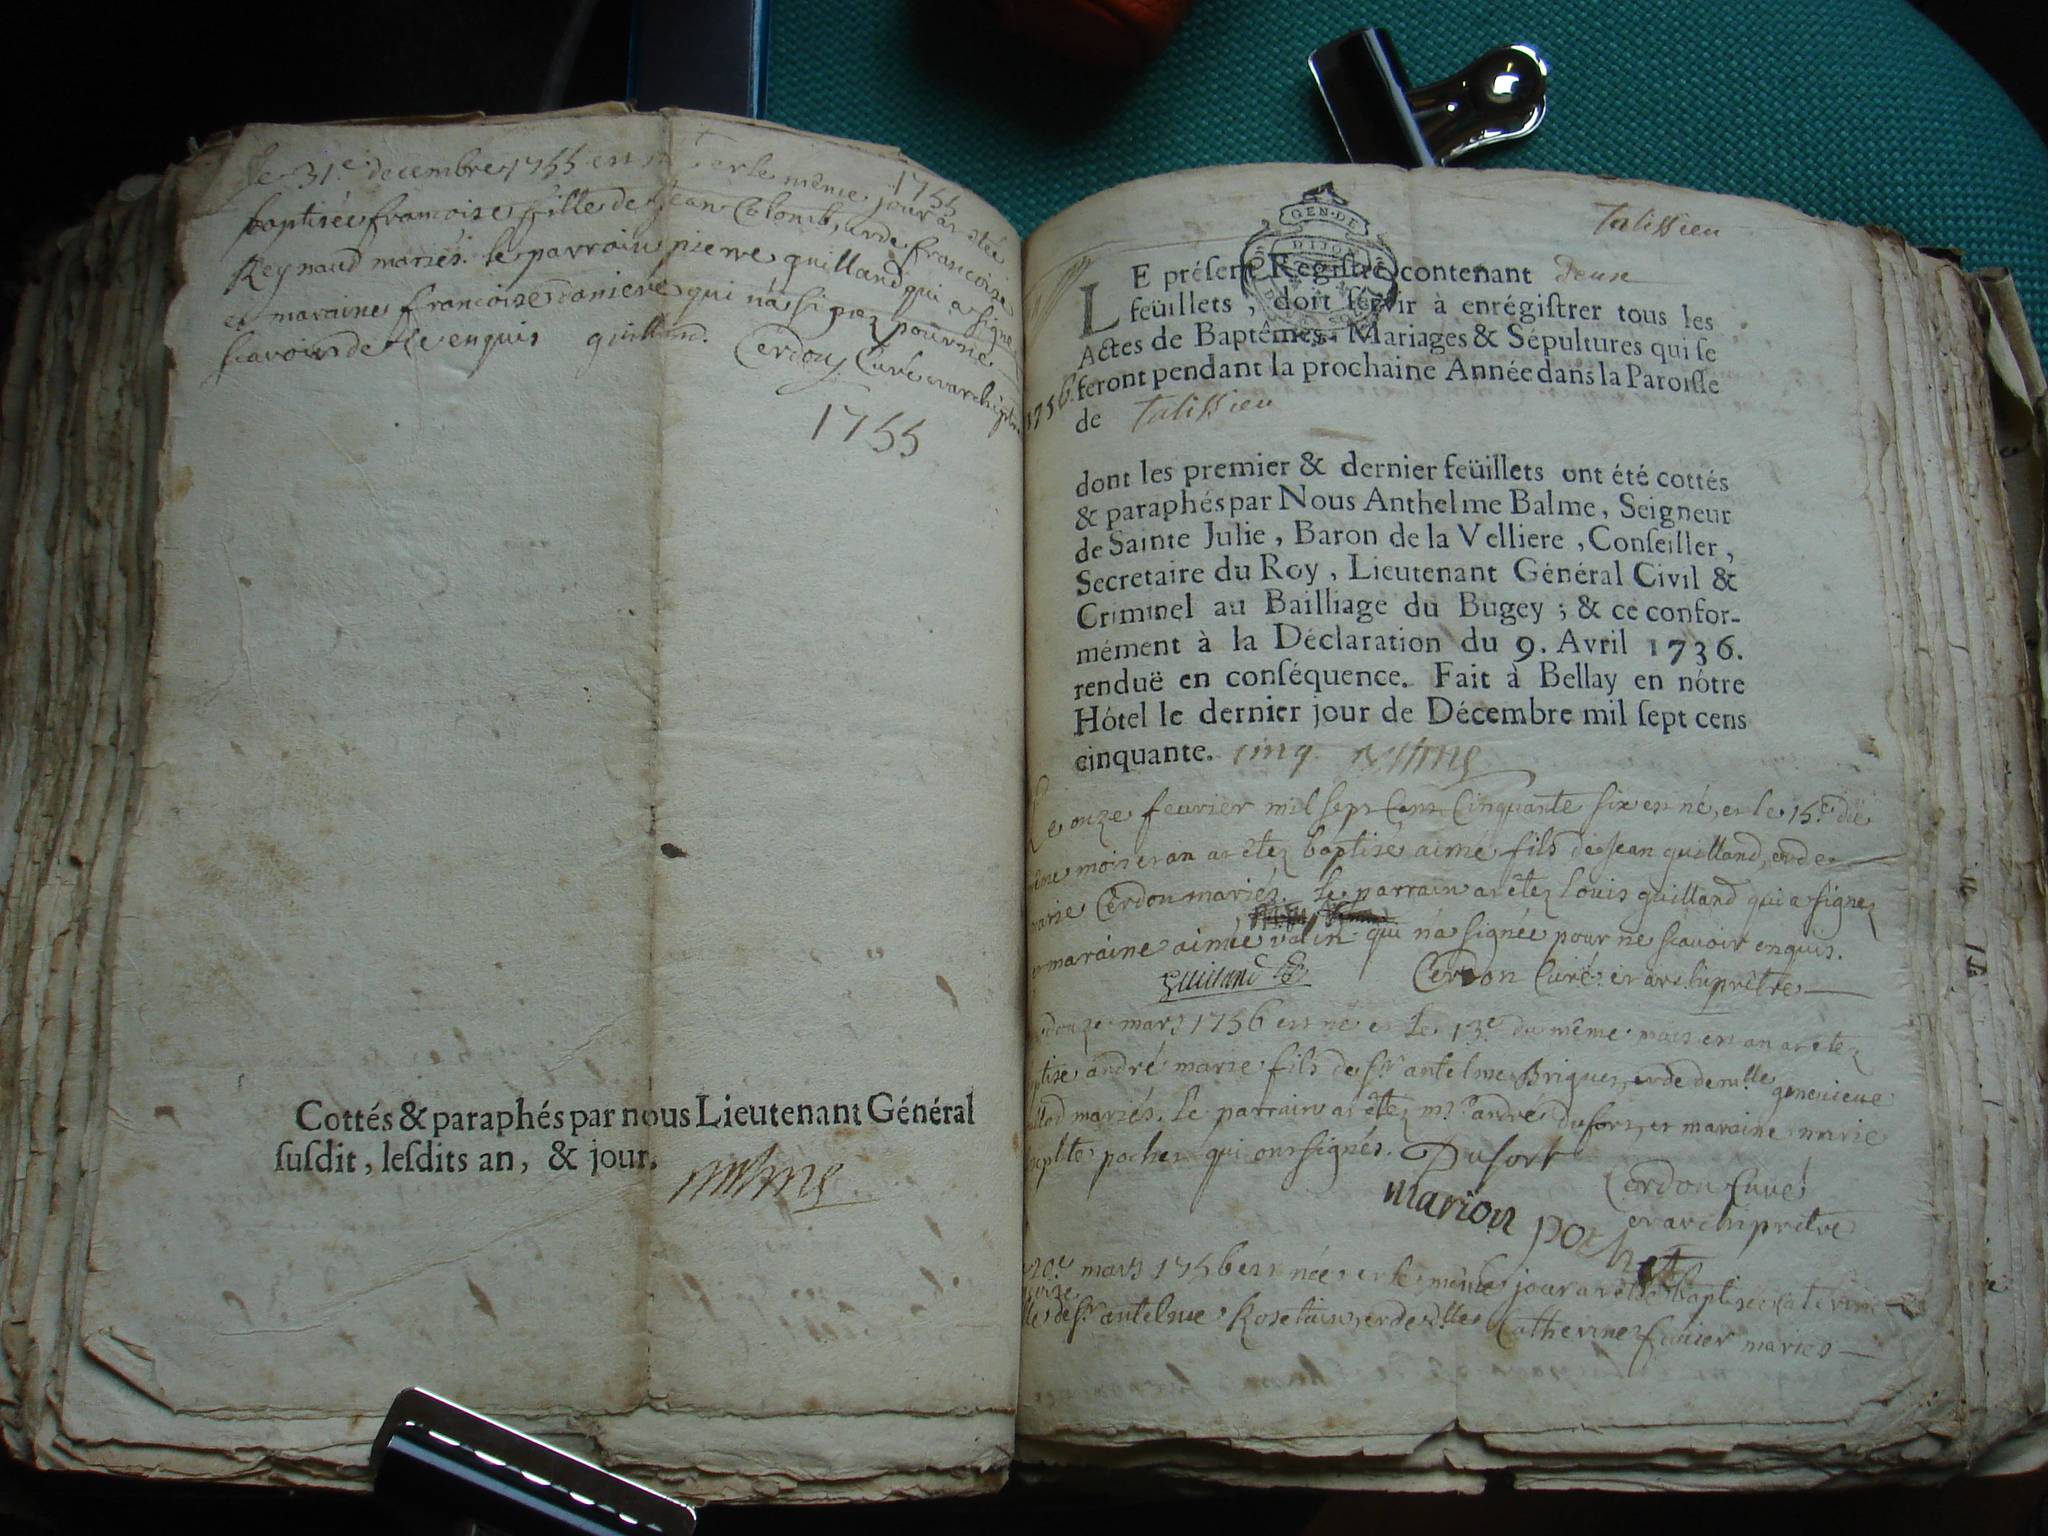 1755
Le 31e decembre 1755 est et le même jour a été
baptisée francoise fille de Jean Colomb, et de francoise
Reynaud mariés. le parrain pierre guilland qui a signé
et maraine francoise qui n'a signez pour ne
scavoir de ce enquis guilland. Cerdon Curé et archiptre
1755
Cottés & paraphés par nous Lieutenant Général
ſuſdit, leſdits an, & jour.
Talissieu
GEN. DE
DIJON
LE préſent Regiſtre contenant deuse
feüillets, doit ſervir à enrégiſtrer tous les
Actes de Baptêmes, Mariages & Sépultures qui ſe
1756. feront pendant la prochaine Année dans la Paroiſſe
de Talissieu
dont les premier & dernier feüillets ont été cottés
& paraphés par Nous Anthelme Balme, Seigneur
de Sainte Julie, Baron de la Velliere, Conſeiller,
Secretaire du Roy, Lieutenant Général Civil &
Criminel au Bailliage du Bugey ; & ce confor-
mément à la Déclaration du 9. Avril 1736.
renduë en conſéquence. Fait à Bellay en nôtre
Hôtel le dernier jour de Décembre mil ſept cens
cinquante. cinq
Le onze feurier mil sept Cent Cinquante six est né, et le 15e du
même mois et an at êtez baptisé aimé fils de Jean guilland, et de
marie Cerdon mariés. Le parrain at êtez Louis guilland qui a signez
et maraine aimée qui n'a signée pour ne scauoir enquis.
Guilland Cerdon Curé et archiprêtre
douze mars 1756 est né et le 13e du même mois et an at etez
baptisé andré marie fils de sr antelme Briguet, et de demlle genevieue
mariés. Le parrain at êtez mr andré Dufort, et maraine marie
pochet qui ont signés. Dufort
Cerdon Curé
marion pochet et archiprêtre
20e mars 1756 est née et le même jour at été baptisée Caterine
fille de sr antelme Rosetain, et de dlle Catherine fauier mariés